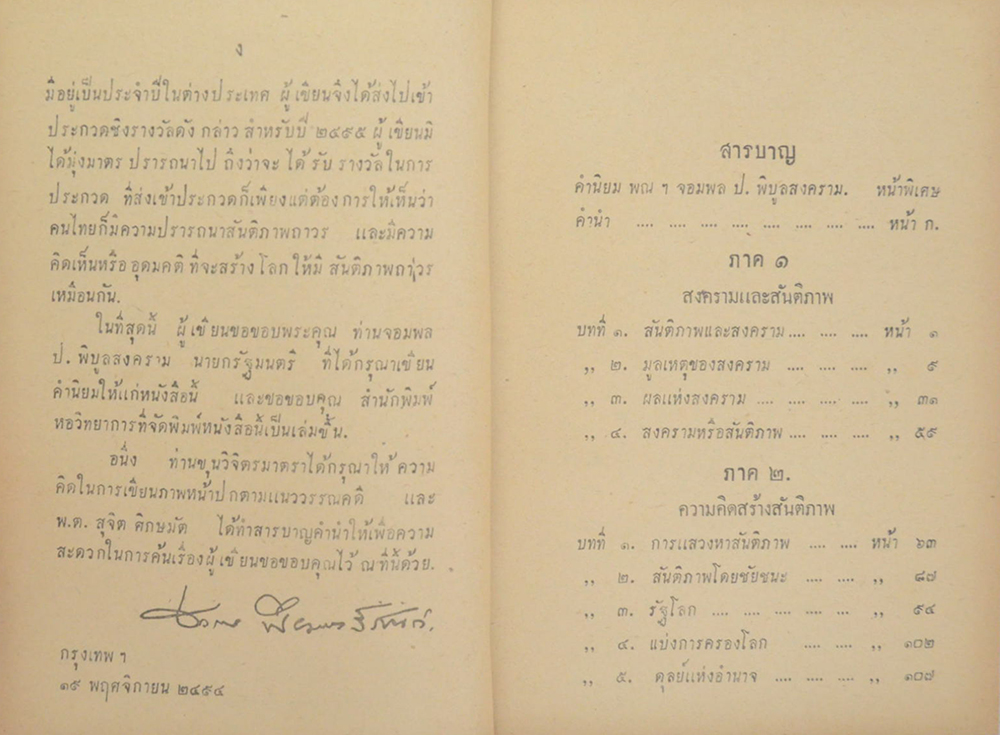 ง
มีอยู่เป็นประจำปีในต่างประเทศ ผู้เขียนจึงได้ส่งไปเข้า
ประกวดชิงรางวัลดังกล่าว สำหรับปี ๒๔๕๕ ผู้เขียนมิ
ได้มุ่งมาตรปรารถนาไปถึงว่าจะได้รับรางวัลในการ
ประกวด ที่ส่งเข้าประกวดก็เพียงแต่ต้องการให้เห็นว่า
คนไทยก็มีความปรารถนาสันติภาพถาวร และมีความ
คิดเห็นหรืออุดมคติที่จะสร้างโลกให้มีสันติภาพถาวร
เหมือนกัน.
ในที่สุดนี้ ผู้เขียนขอขอบพระคุณ ท่านจอมพล
ป. พิบูลสงคราม นายกรัฐมนตรี ที่ได้กรุณาเขียน
คำนิยมให้แก่หนังสือนี้ และขอขอบคุณ สำนักพิมพ์
หอวิทยาการที่จัดพิมพ์หนังสือนี้เป็นเล่มขึ้น.
อนึ่ง ท่านขุนวิจิตรมาตราได้กรุณาให้ความ
คิดในการเขียนภาพหน้าปกตามแนววรรณคดี และ
พ.ต. สุจิต ศิกษมัต ได้ทำสารบาญคำนำให้เพื่อความ
สะดวกในการค้นเรื่องผู้เขียนขอขอบคุณไว้ ณ ที่นี้ด้วย.
กรุงเทพ ฯ
๑๙ พฤศจิกายน ๒๔๙๔
สารบาญ
คำนิยม พณ ฯ จอมพล ป. พิบูลสงคราม. หน้าพิเศษ
คำนำ .... .... .... .... .... .... .... .... หน้า ก.
ภาค ๑
สงครามและสันติภาพ
บทที่ ๑. สันติภาพและสงคราม .... .... .... หน้า ๑
,, ๒. มูลเหตุของสงคราม .... .... .... ,, ๙
,, ๓. ผลแห่งสงคราม .... .... .... .... ,, ๓๑
,, ๔. สงครามหรือสันติภาพ .... .... .... ,, ๕๙
ภาค ๒.
ความคิดสร้างสันติภาพ
บทที่ ๑. การแสวงหาสันติภาพ .... .... หน้า ๖๓
,, ๒. สันติภาพโดยชัยชนะ .... .... ,, ๘๗
,, ๓. รัฐโลก .... .... .... .... .... ,, ๙๔
,, ๔. แบ่งการครองโลก .... .... ,, ๑๐๒
,, ๕. ดุลย์แห่งอำนาจ .... .... .... ,, ๑๐๗